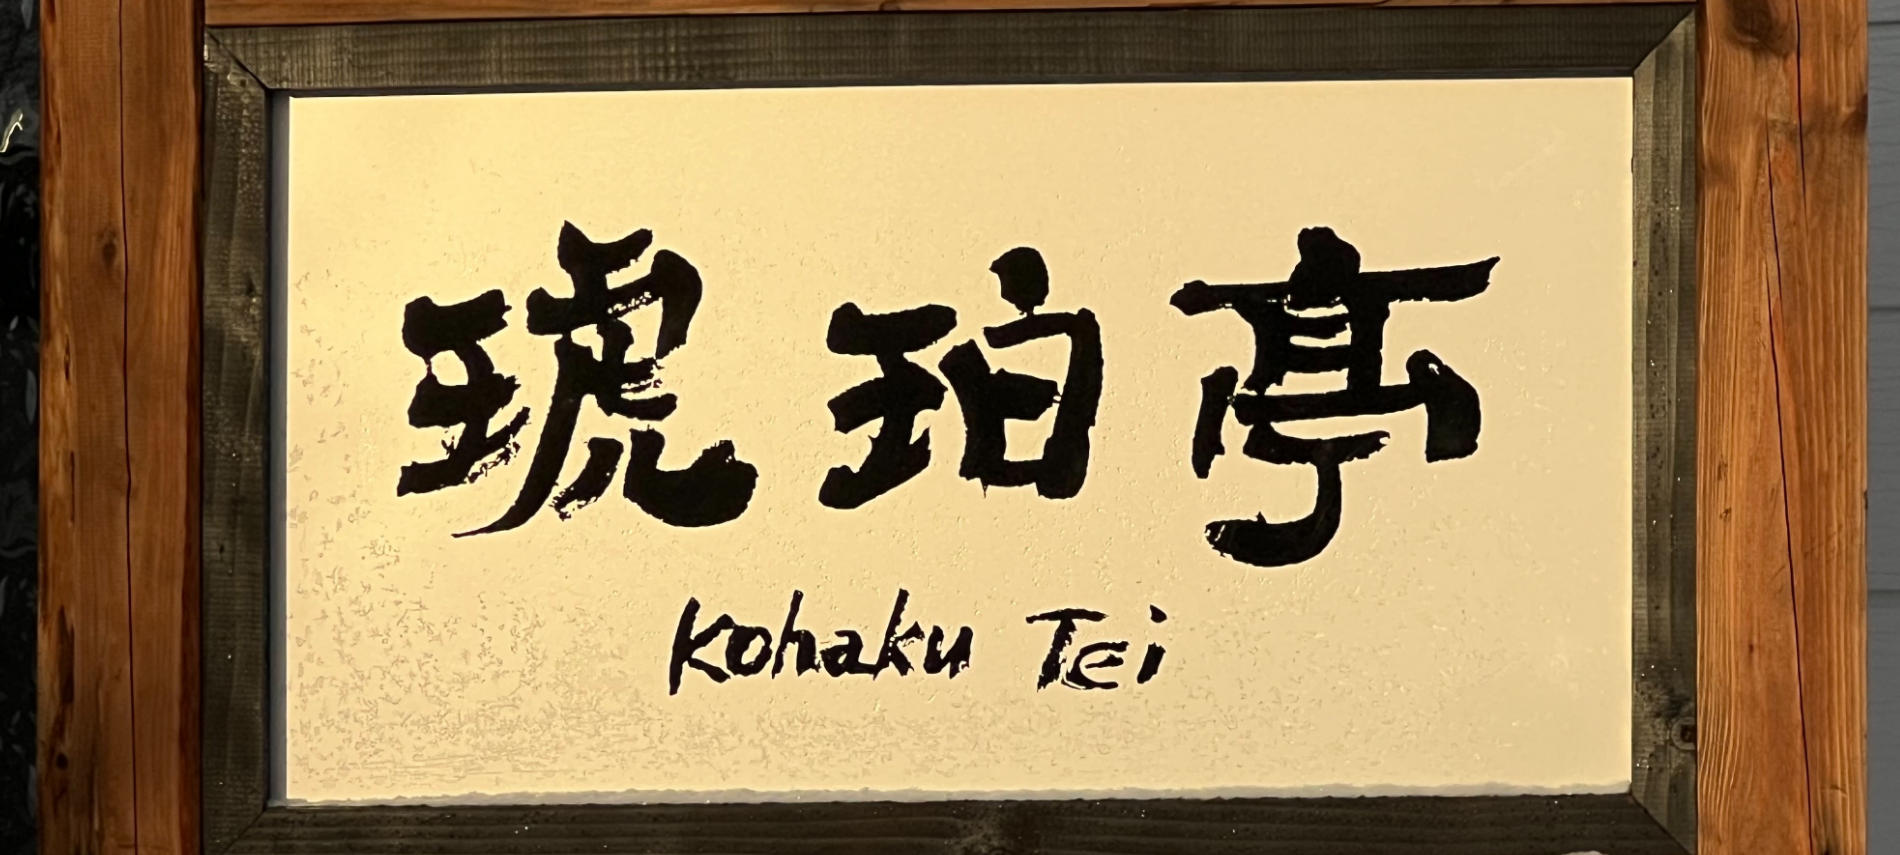 琥珀亭
Kohaku Tei